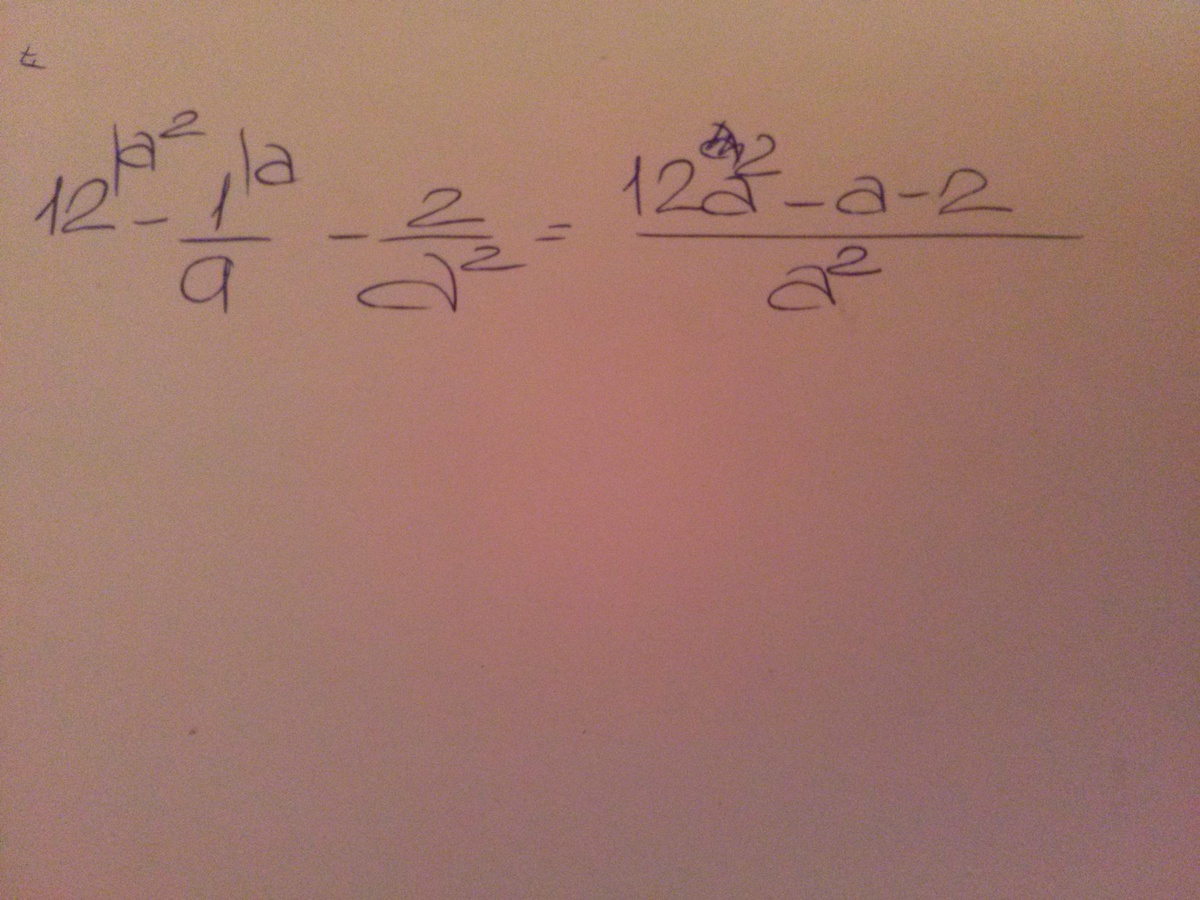 12|a² - 1|a/a - 2/a² = (12a² - a - 2)/a²